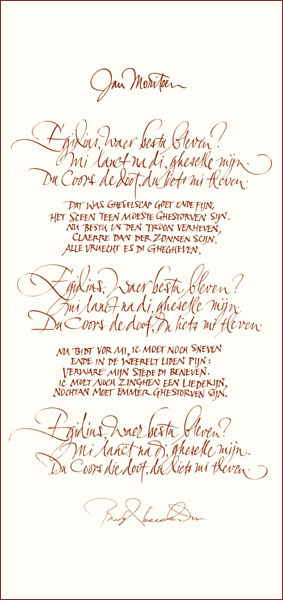 Jan Moritoen
Egidius, waer bestu bleven?
Mi lanct na di, gheselle mijn.
Du Coors de doot, du liets mi tleven.
DAT WAS GHESELSCAP GOET ENDE FIJN,
HET SCEEN TEEN MOESTE GHESTORVEN SIJN.
NU BESTU IN DEN TROON VERHEVEN,
CLAERRE DAN DER ZONNEN SCIJN.
ALLE VRUECHT ES DI GHEGHEVEN.
Egidius, waer bestu bleven?
Mi lanct na di, gheselle mijn.
Du Coors de doot, du liets mi tleven.
NU BIDT VOR MI, IC MOET NOCH SNEVEN
ENDE IN DE WEERELT LIDEN PIJN:
VERWARE MIJN STEDE DI BENEVEN.
IC MOET NOCH ZINGHEN EEN LIEDEKIJN,
NOCHTAN MOET EMMER GHESTORVEN SIJN.
Egidius, waer bestu bleven?
Mi lanct na di, gheselle mijn.
Du Coors die doot, du liets mi tleven.